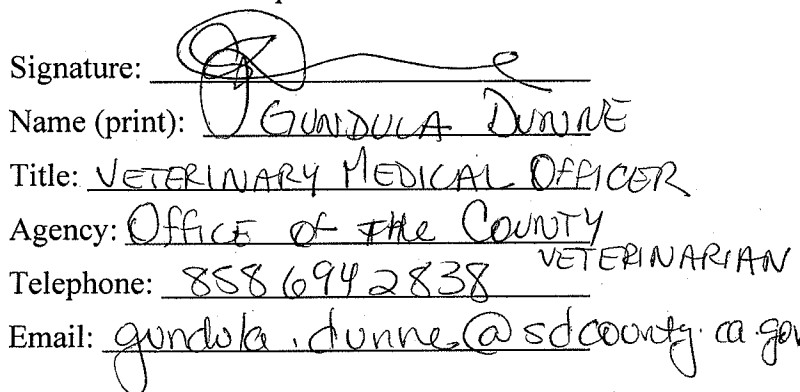 Signature:
Name (print): GUNDULA DUNNE
Title: VETERINARY MEDICAL OFFICER
Agency: Office of the County
VETERINARIAN
Telephone: 858 694 2838
Email: gundula.dunne@sdcounty.ca.gov